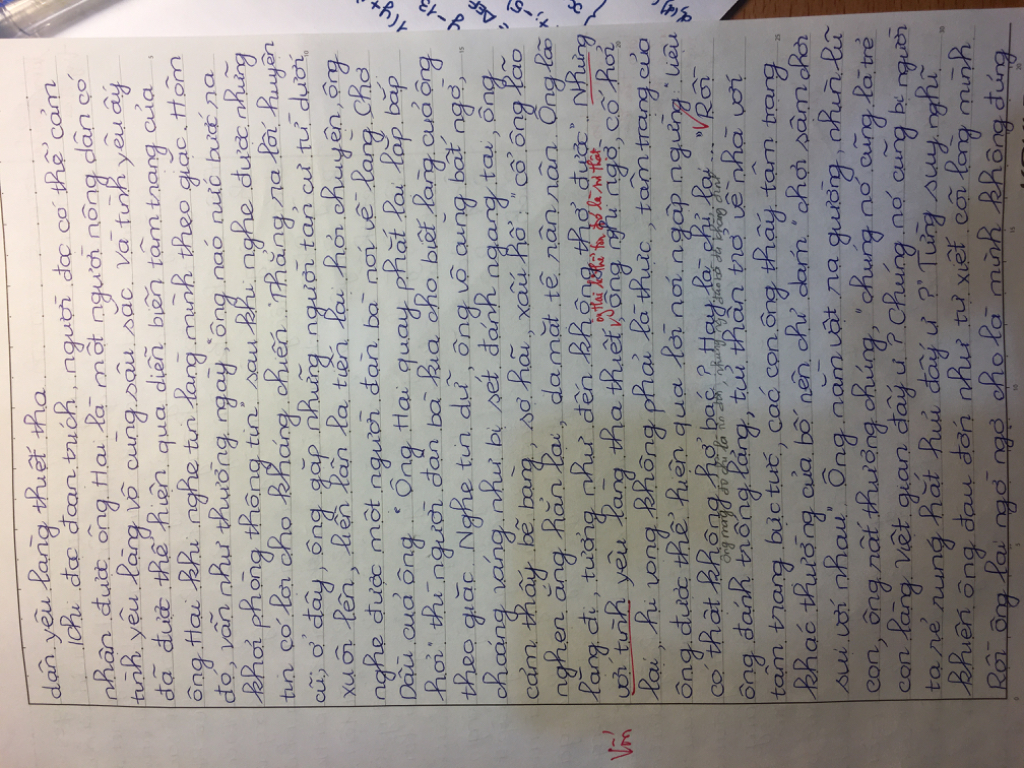 dân yêu làng thiết tha
Khi đọc đoạn trích, người đọc có thể cảm
nhận được ông Hai là một người nông dân có
tình yêu làng vô cùng sâu sắc. Và tình yêu ấy
đã được thể hiện qua diễn biến tâm trạng của
ông Hai khi nghe tin làng mình theo giặc. Hôm
đó, vẫn như thường ngày, ông náo nức bước ra
khỏi phòng thông tin sau khi nghe được những
tin có lợi cho kháng chiến. Thẳng ra lối huyện
cũ, ở đây, ông gặp những người tản cư từ dưới
xuôi lên, liền lân la tiến lại hỏi chuyện, ông
nghe được một người đàn bà nói về làng Chợ
Dầu của ông. "Ông Hai quay phắt lại lắp bắp
hỏi" thì người đàn bà kia cho biết làng của ông
theo giặc. Nghe tin dữ, ông vô cùng bất ngờ,
choáng váng như bị sét đánh ngang tai, ông
cảm thấy bẽ bàng, sợ hãi, xấu hổ: "cổ ông lão
nghẹn ắng hẳn lại, da mặt tê rân rân. Ông lão
lặng đi, tưởng như đến không thở được". Nhưng
với tình yêu làng tha thiết, ông nghi ngờ, cố hỏi
lại, hi vọng không phải là thực, tâm trạng của
ông được thể hiện qua lời nói ngập ngừng "liệu
có thật không hở bác? Hay là chỉ lại.......... "Rồi
ông đánh trống lảng, tủi thân trở về nhà với
tâm trạng bực tức, các con ông thấy tâm trạng
khác thường của bố nên chỉ dám "chơi sậm chơi
sụi với nhau". Ông nằm vật ra giường, nhìn lũ
con, ông rất thương chúng, "chúng nó cũng là trẻ
con làng Việt gian đấy ư? Chúng nó cũng bị người
ta rẻ rúng hắt hủi đấy ư?" Từng suy nghĩ
khiến ông đau đớn như tự xiết cõi lòng mình
Rồi ông lại ngờ ngợ cho là mình không đúng
Với